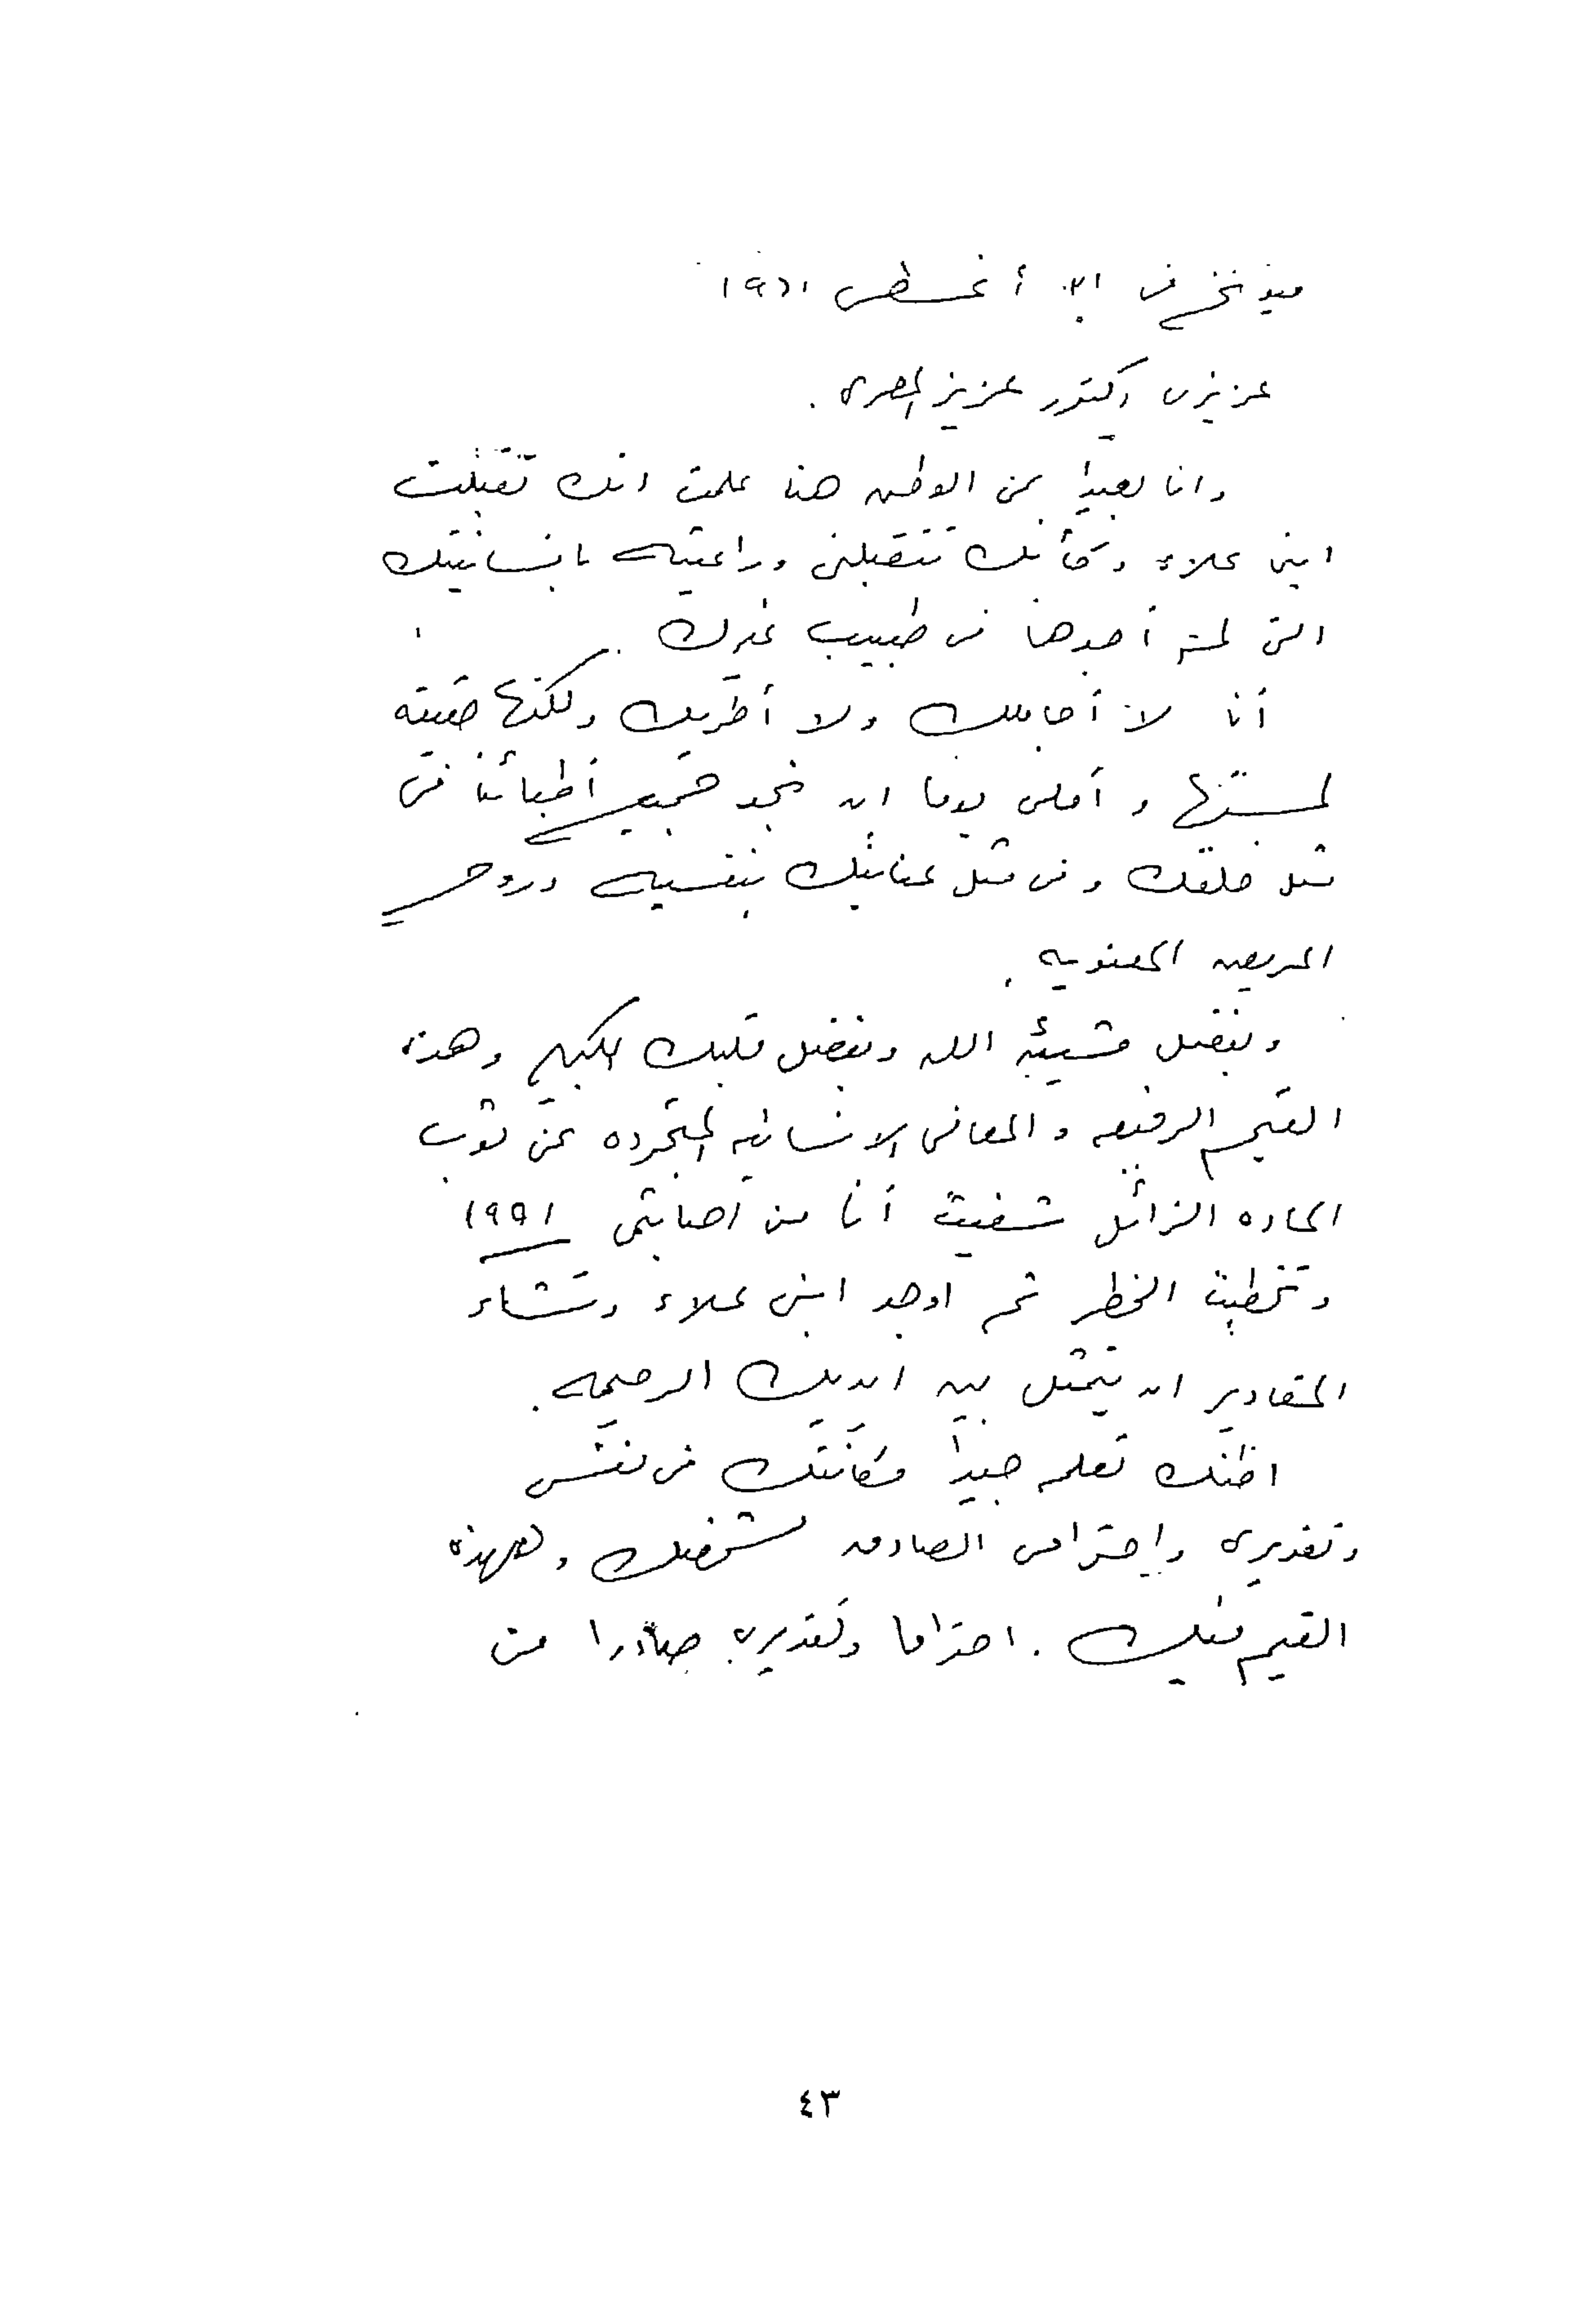 ميونخ في أغسطس ١٩٦١
عزيزي الدكتور عزيز المصرى .
وانا بعيدا عن الوطن هنا علمت انك تقبلت
ابنى علاء وكأنك تتقبلنى وراعيته بانسانيتك
التى لم أجدها فى طبيب غيرك .
أنا لا أجاملك ولا أطريك ولكنها حقيقة
لمستها و أملى يوما ان نجد جميع أطبائنا فى
مثل خلقك وفى مثل عنايتك بنفسيه وروح
المريض المعنويه .
وبفضل مشيئة الله وبفضل قلبك الكبير وهذه
القيم الرفيعه و المعانى الانسانيه المتجرده عن ثوب
الماده الزائل شفيت أنا من اصابتى ١٩٥١
وتخطيت الخطر ثم اوجد ابنى علاء وتشاء
المقادير ان يتمثل بين ايديك الرحيمه .
اظنك تعلم جيدا مكانتك فى نفسى
وتقديرى واحترامى الصادق لشخصك ولهذه
القيم فيك . احتراما وتقديرى صادرا من
٤٣